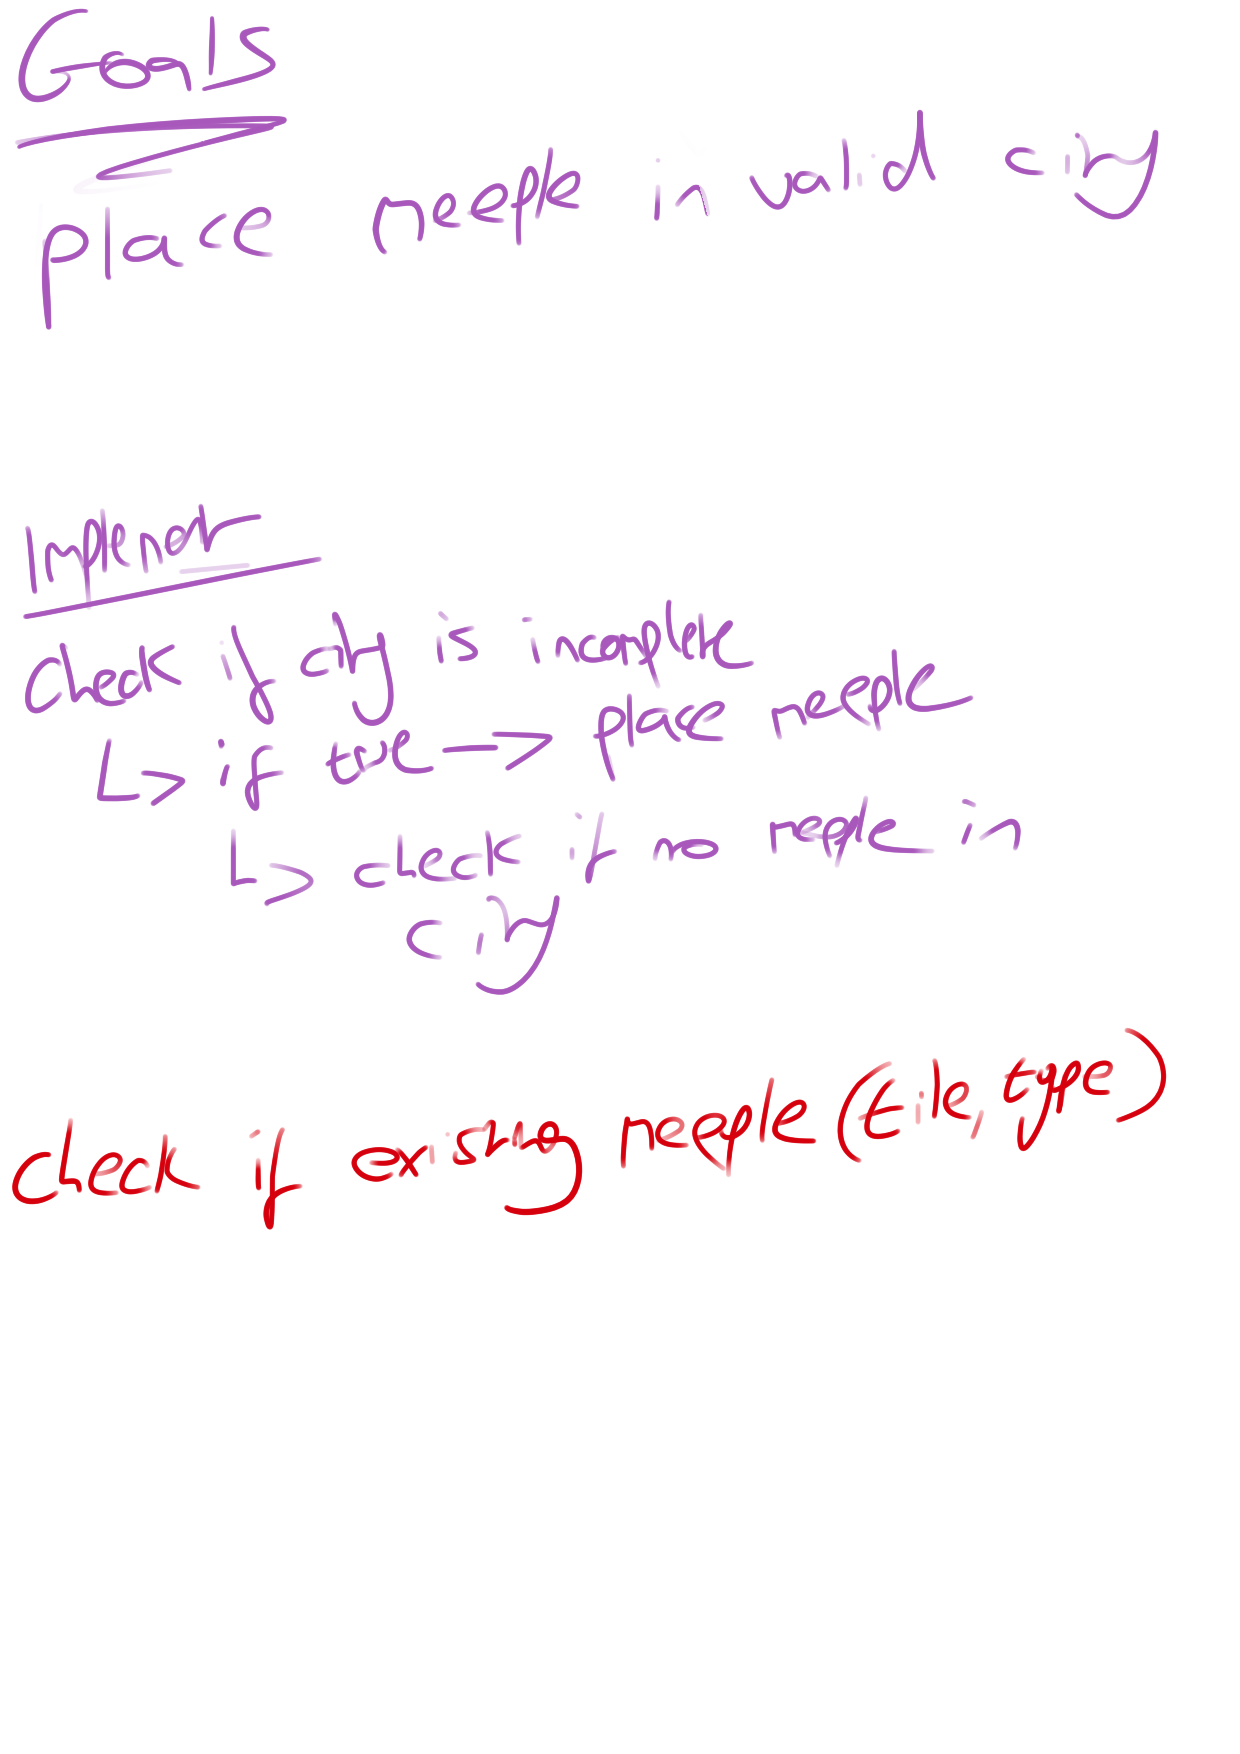 Goals
place meeple in valid city
Implement
check if city is incomplete
↳ if true → place meeple
↳ check if no meeple in
city
check if existing meeple (tile, type)